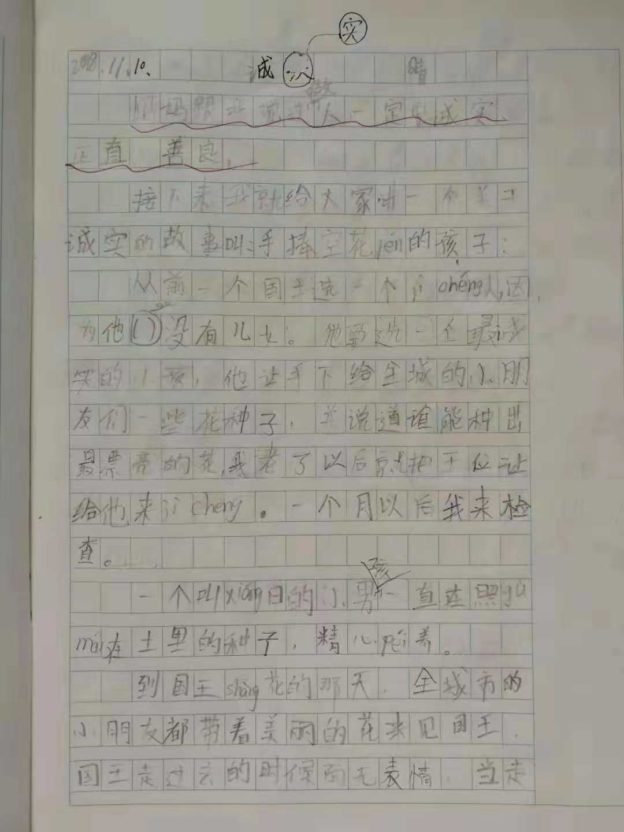 实
2018.11.10. 诚 晴
做
妈妈 人一定要诚实
正直 善良。
接下来我就给大家讲一个关于
诚实的故事叫:手捧空花pén的孩子:
从前一个国王选一个ji chéng人,因
为他()没有儿女。他要选一个最诚
实的小孩,他让手下给全城的小朋
友们一些花种子,并说道谁能种出
最票亮的花,我老了以后就把王位让
给他来ji cheng。一个月以后我来检
查。
孩
一个叫xióng日的小男一直在照gù
mái在土里的种子,精心péi养。
到国王shǎng花的那天,全城市的
小朋友都带着美丽的花来见国王,
国王走过去的时候面无表情,当走